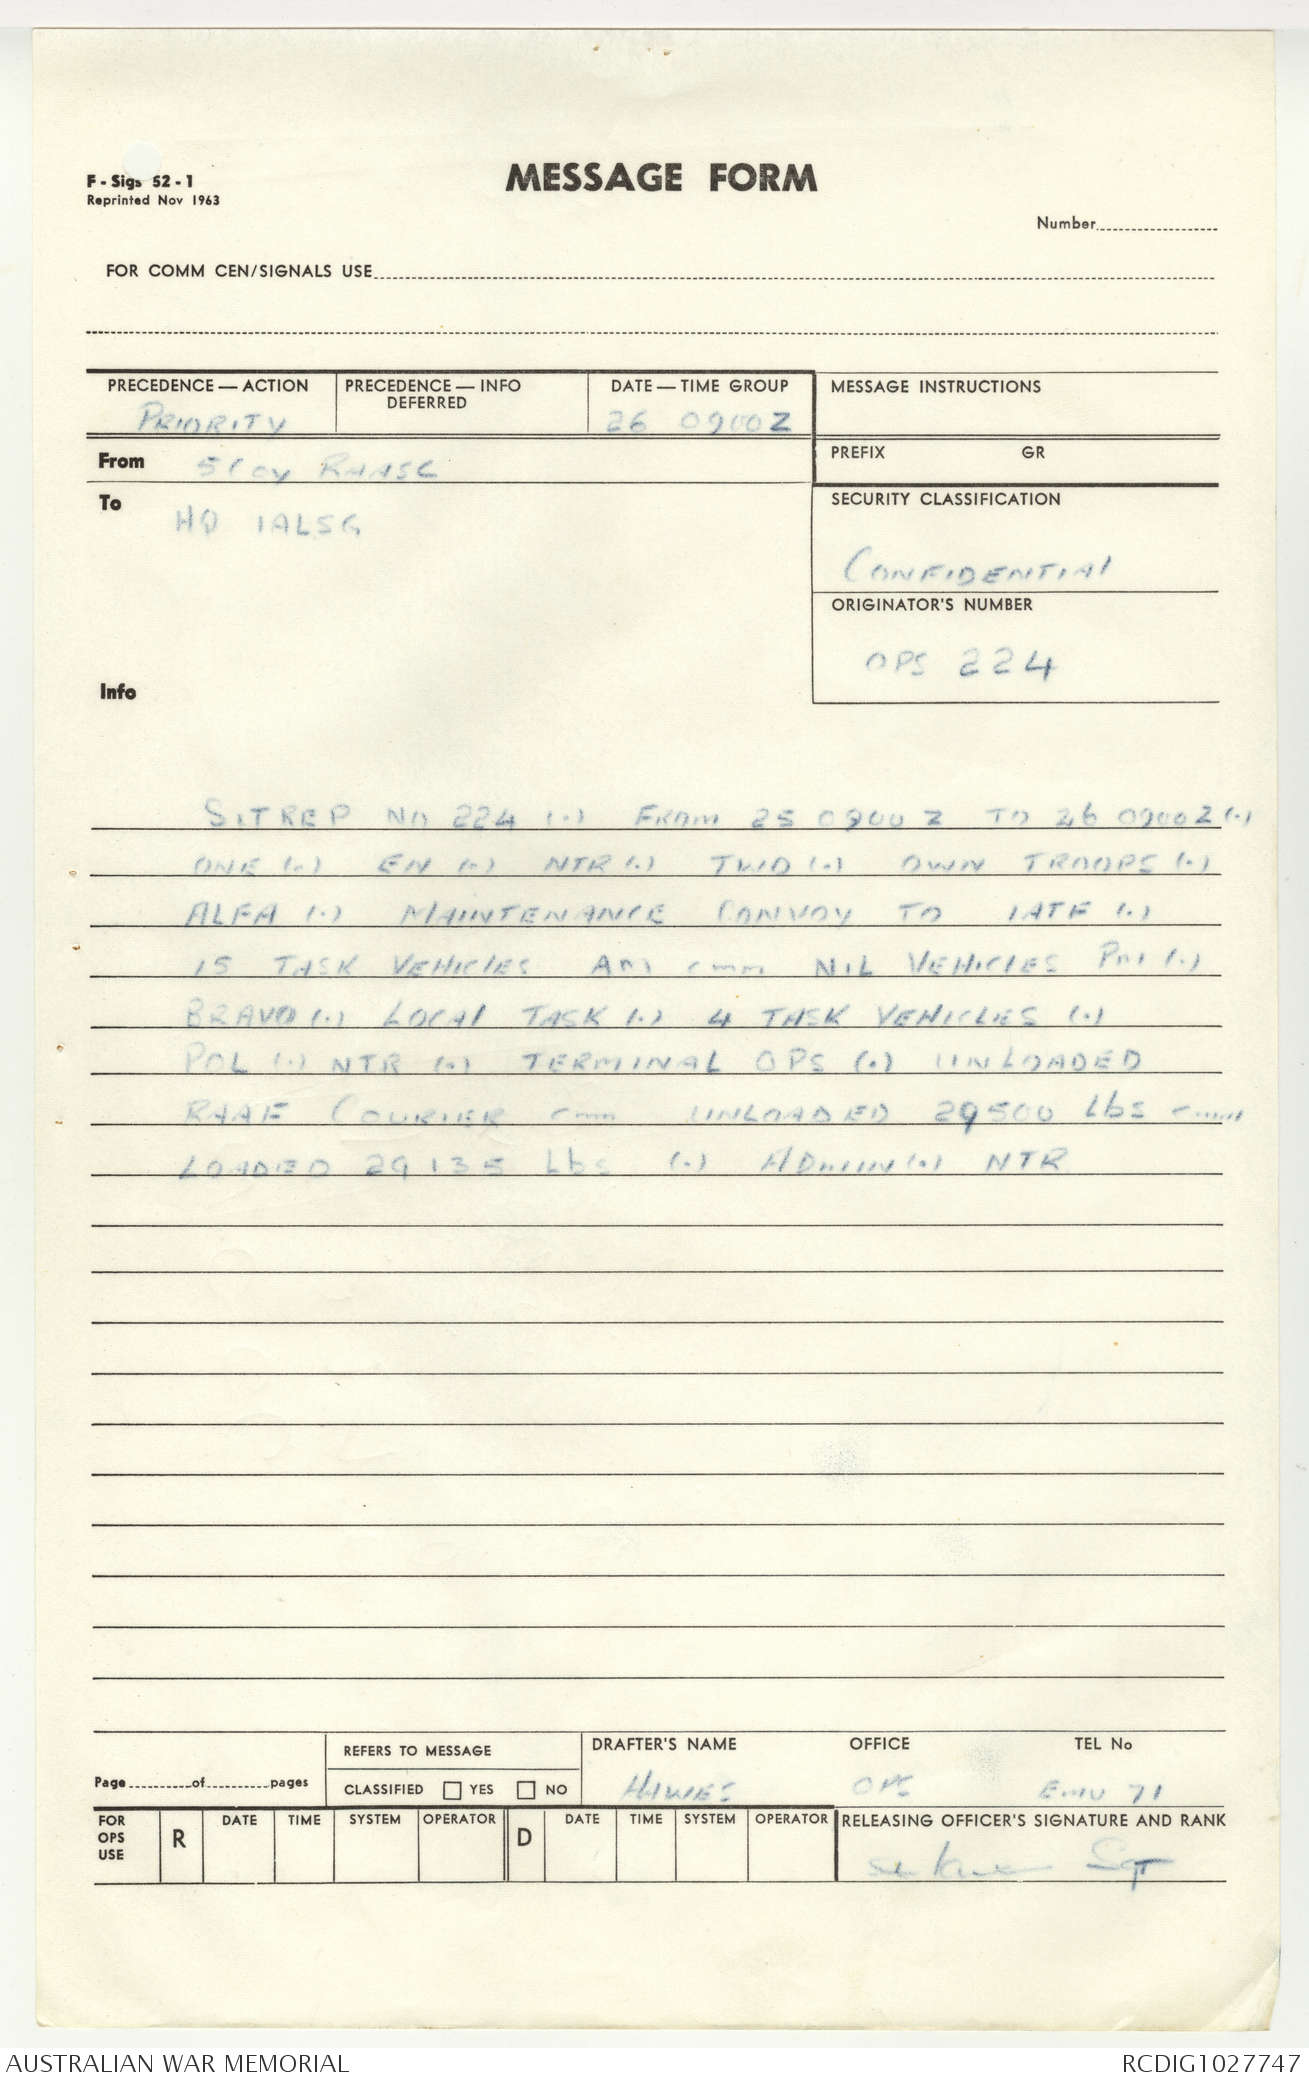 F - Sigs 52 - 1
Reprinted Nov 1963
MESSAGE FORM
Number
FOR COMM CEN/SIGNALS USE
PRECEDENCE — ACTION
PRIORITY
PRECEDENCE — INFO
DEFERRED
DATE — TIME GROUP
26 0900Z
MESSAGE INSTRUCTIONS
From 5 Coy RAASC
PREFIX GR
To
HQ 1ALSG
SECURITY CLASSIFICATION
CONFIDENTIAL
ORIGINATOR'S NUMBER
OPS 224
Info
SITREP NO 224 (.) FROM 25 0900Z TO 26 0900Z (.)
ONE (.) EN (.) NTR (.) TWO (.) OWN TROOPS (.)
ALFA (.) MAINTENANCE CONVOY TO 1ATF (.)
15 TASK VEHICLES AM cmm NIL VEHICLES PM (.)
BRAVO (.) LOCAL TASK (.) 4 TASK VEHICLES (.)
POL (.) NTR (.) TERMINAL OPS (.) UNLOADED
RAAF COURIER cmm UNLOADED 29500 Lbs cmm
LOADED 29135 Lbs (.) ADMIN (.) NTR
Page of pages
REFERS TO MESSAGE
CLASSIFIED YES NO
DRAFTER'S NAME
HAWES
OFFICE
OPS
TEL No
EMU 71
FOR
OPS
USE
R
DATE TIME SYSTEM OPERATOR
D
DATE TIME SYSTEM OPERATOR
RELEASING OFFICER'S SIGNATURE AND RANK
SGT
AUSTRALIAN WAR MEMORIAL
RCDIG1027747